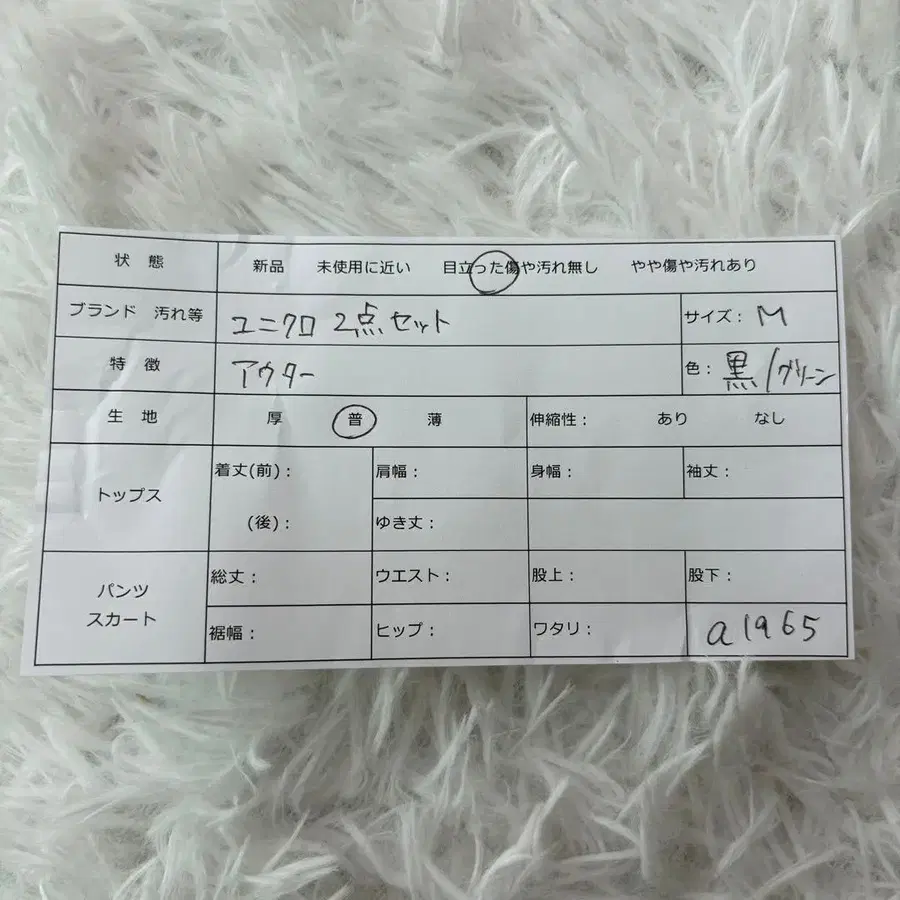 状 態 新品 未使用に近い 目立った傷や汚れ無し やや傷や汚れあり
ブランド 汚れ等 ユニクロ 2点セット サイズ： M
特 徴 アウター 色： 黒/グリーン
生 地 厚 普 薄 伸縮性： あり なし
トップス 着丈(前)： 肩幅： 身幅： 袖丈：
(後)： ゆき丈：
パンツ スカート 総丈： ウエスト： 股上： 股下：
裾幅： ヒップ： ワタリ： a1965